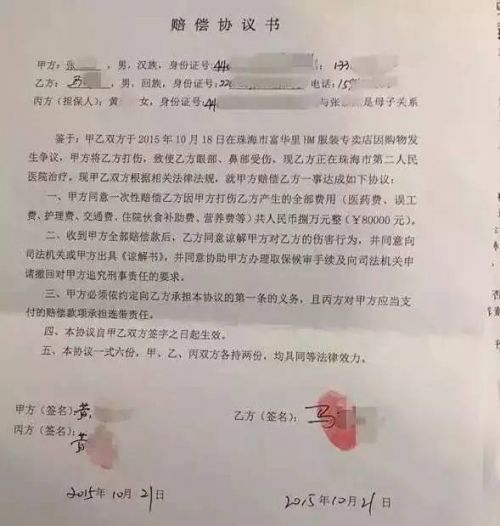 赔偿协议书
甲方：张 ，男，汉族，身份证号：44 ：133
乙方：马 ，男，回族，身份证号：220 电话：15
丙方（担保人）：黄 女，身份证号：44 与张 是母子关系
鉴于：甲乙双方于2015年10月18日在珠海市富华里HM服装专卖店因购物发
生争议，甲方将乙方打伤，致使乙方眼部、鼻部受伤，现乙方正在珠海市第二人民
医院治疗。现甲乙双方根据相关法律法规，就甲方赔偿乙方一事达成如下协议：
一、甲方同意一次性赔偿乙方因甲方打伤乙方产生的全部费用（医药费、误工
费、护理费、交通费、住院伙食补助费、营养费等）共人民币捌万元整（¥80000元）。
二、收到甲方全部赔偿款后，乙方同意谅解甲方对乙方的伤害行为，并同意向
司法机关或甲方出具《谅解书》，并同意协助甲方办理取保候审手续及向司法机关申
请撤回对甲方追究刑事责任的要求。
三、甲方必须依约定向乙方承担本协议的第一条的义务，且丙方对甲方应当支
付的赔偿款项承担连带责任。
四、本协议自甲乙双方签字之日起生效。
五、本协议一式六份，甲、乙、丙双方各持两份，均具同等法律效力。
甲方（签名）：黄
丙方（签名）：黄
乙方（签名）：马
2015年10月21日
2015年10月21日